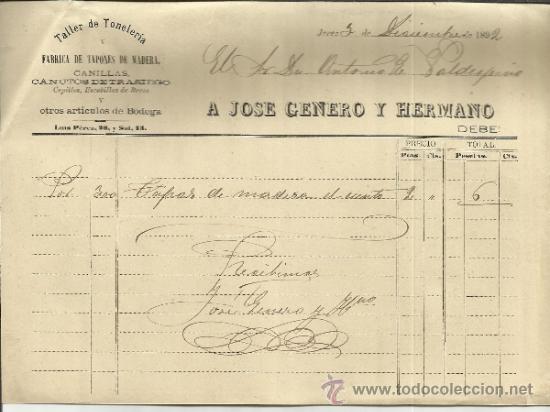 Taller de Tonelería
Y
FABRICA DE TAPONES DE MADERA,
CANILLAS,
CANUTOS DE TRASIEGO
Cepillos, Escobillas de Brezo
Y
otros artículos de Bodega
Luis Pérez, 26, y Sol, 13.
Jerez 3 de Diciembre de 1892
El Sr. Dn. Antonio R. Valdespino
A JOSE GENERO Y HERMANO
DEBE
PRECIO TOTAL
Ptas. Cts. Pesetas. Cts.
Por 300 Tapas de madera el ciento 2 " 6
Recibimos
José Genero y Hno
todocoleccion
www.todocoleccion.net